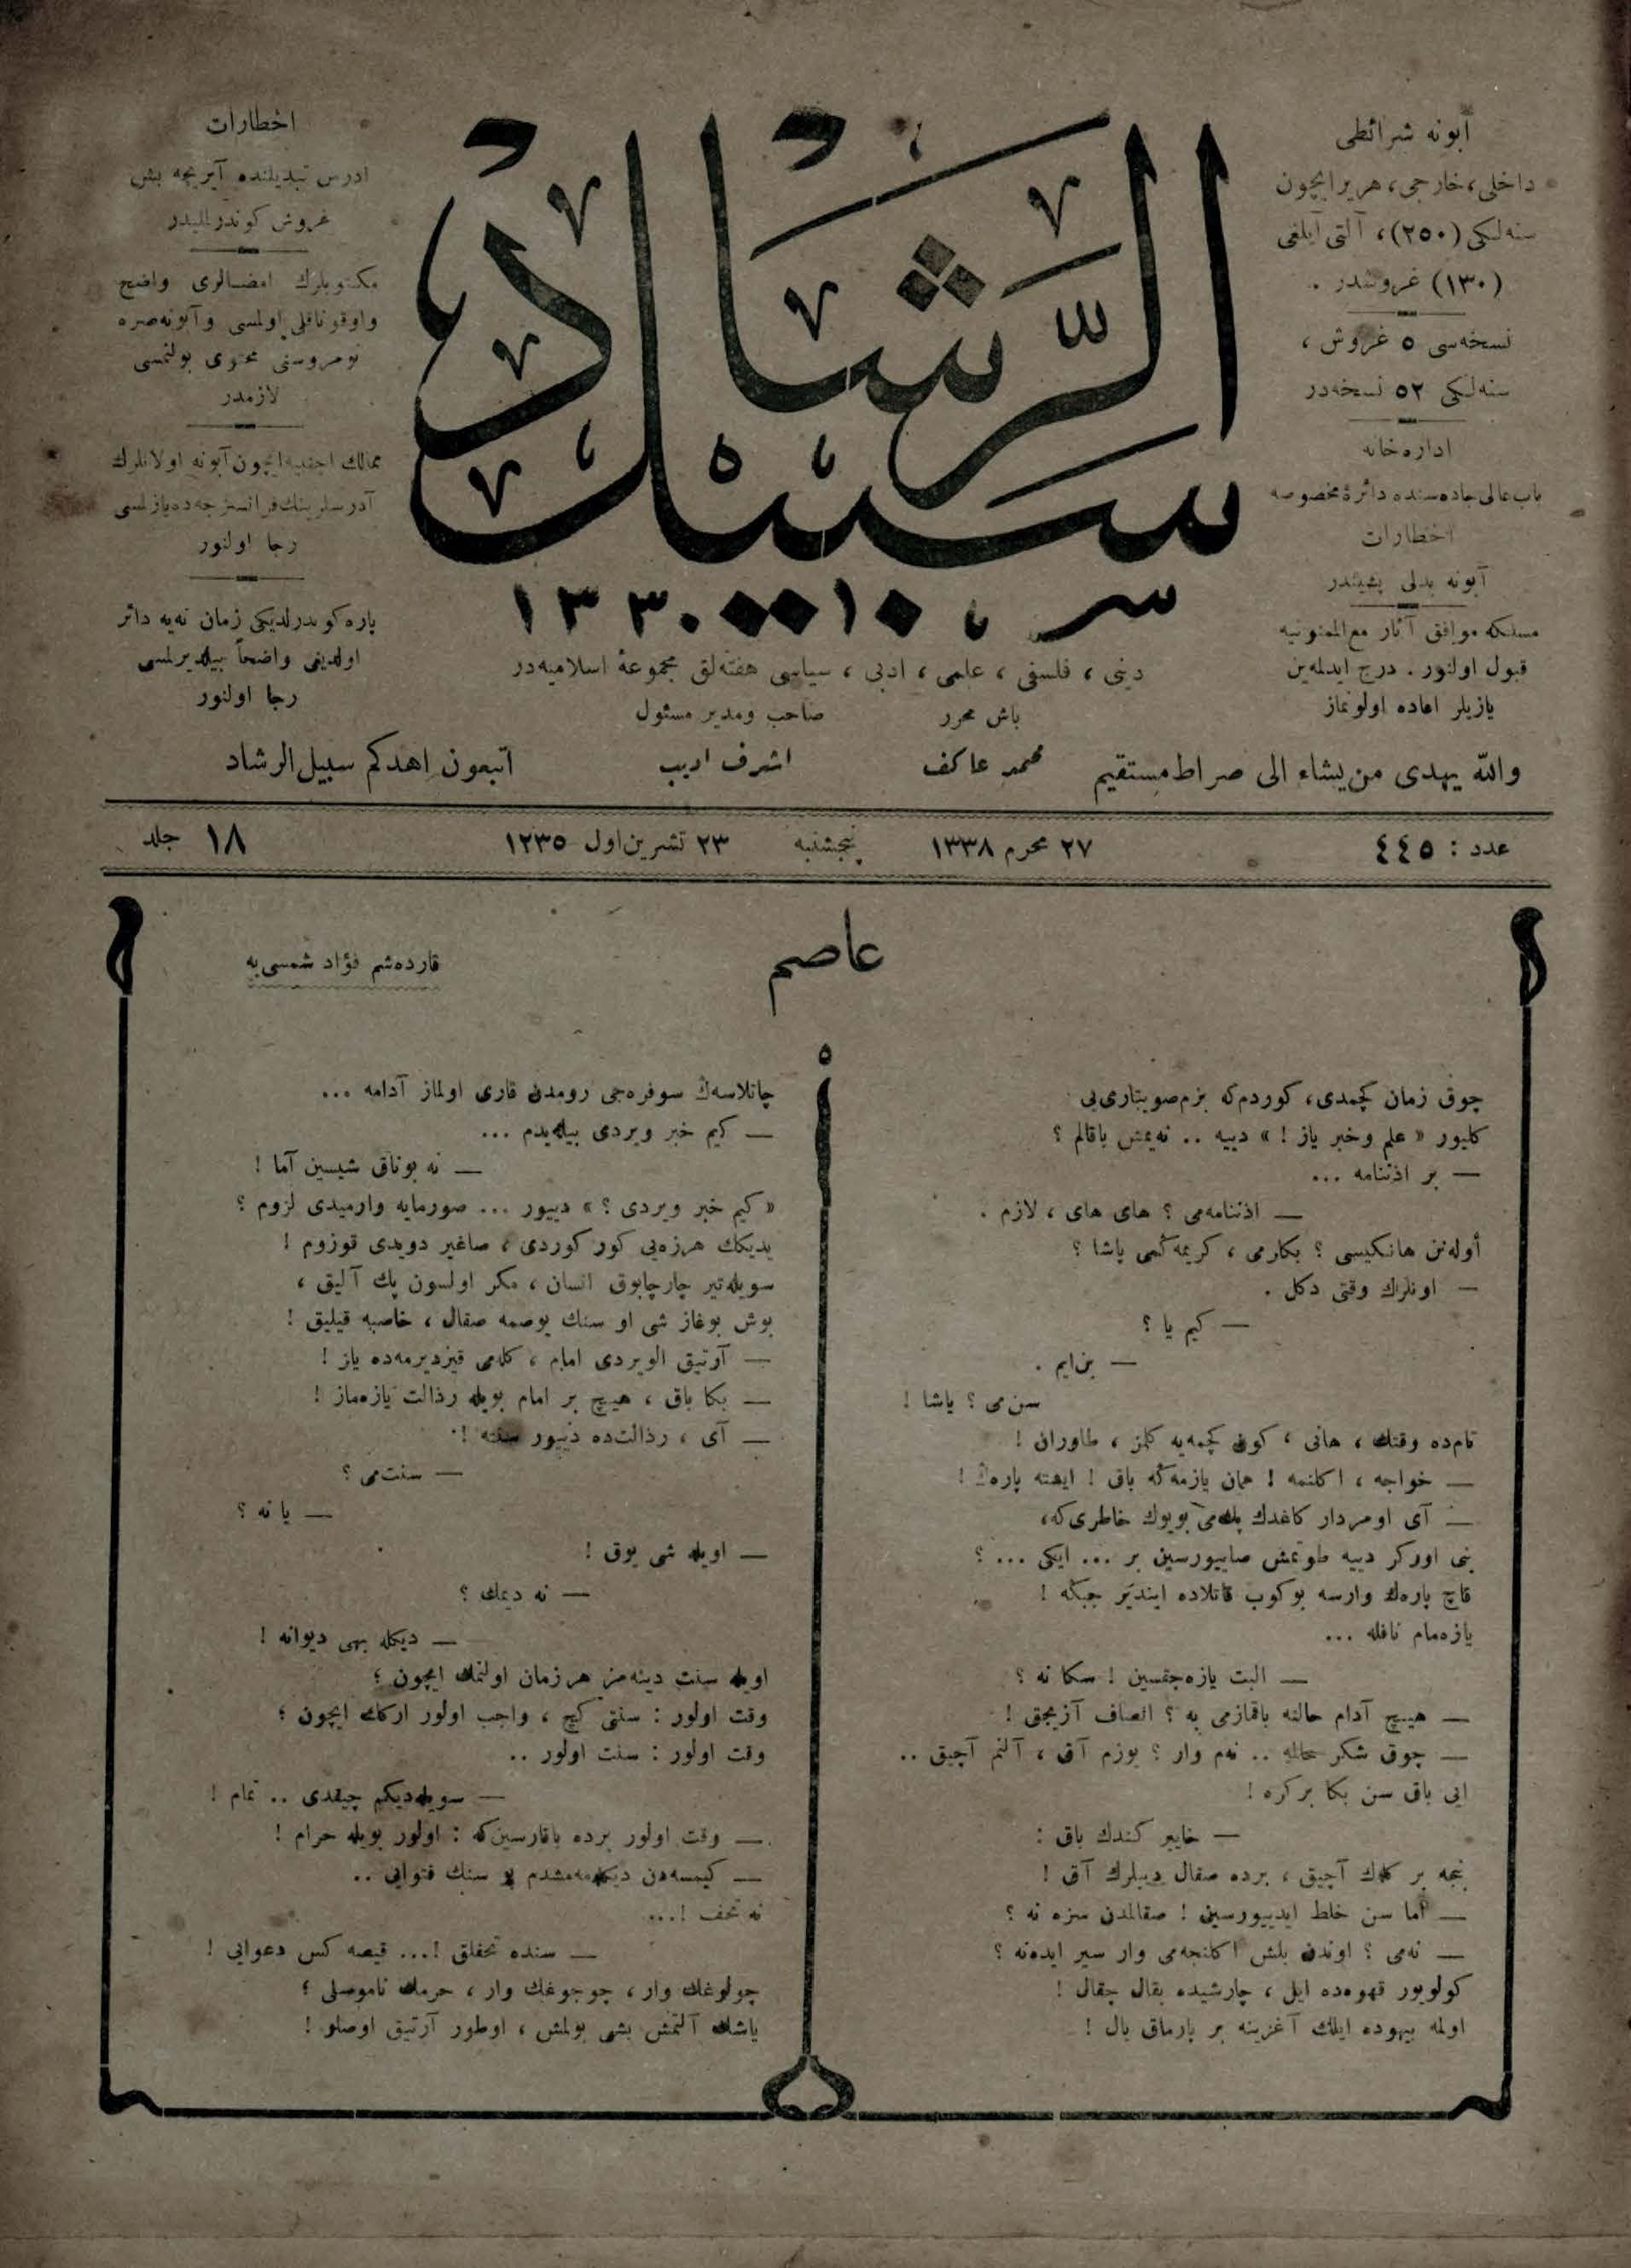 آبونه شرائطی
داخلی، خارجی، هر یر ایچون
سنه‌لکی (٢٥٠)، آلتی آیلغی
(١٣٠) غروشدر .
نسخه‌سی ٥ غروش ،
سنه‌لکی ٥٢ نسخه‌در
اداره‌خانه
باب‌عالی جاده‌سنده دائرهٔ مخصوصه
اخطارات
آبونه بدلی پشیندر
مسلکه موافق آثار مع‌الممنونیه
قبول اولنور . درج ایدلمه‌ین
یازیلر اعاده اولونماز
سبیل الرشاد
١٣٣٠
دینی ، فلسفی ، علمی ، ادبی ، سیاسی هفته‌لق مجموعهٔ اسلامیه‌در
باش محرر
محمد عاکف
صاحب و مدیر مسئول
اشرف ادیب
اخطارات
ادرس تبدیلنده آیریجه بش
غروش کوندرلملیدر
مکتوبلرك امضالری واضح
واوقوناقلی اولمسی وآبونه‌صره
نومروسنی محتوی بولنمسی
لازمدر
ممالك اجنبیه ایچون آبونه اولانلرك
آدرسلرینك فرانسزجه‌ده یازلمسی
رجا اولنور
پاره کوندرلدیکی زمان نه‌یه دائر
اولدیغی واضحاً بیلدیرلمسی
رجا اولنور
والله یهدی من یشاء الی صراط مستقیم
اتبعون اهدکم سبیل الرشاد
عدد : ٤٤٥
٢٧ محرم ١٣٣٨
پنجشنبه
٢٣ تشرین اول ١٣٣٥
جلد ١٨
عاصم
قارده‌شم فؤاد شمسی‌یه
٥
چوق زمان کچمدی، کوردم‌که بزم‌صویتاری‌بی
کلیور « علم وخبر یاز ! » دییه .. نه‌یمش باقالم ؟
— بر اذننامه ...
— اذننامه‌می ؟ های های ، لازم .
أوله‌نن هانکیسی ؟ بکارمی ، کریمه‌کمی پاشا ؟
— اونلرك وقتی دکل .
— کیم یا ؟
— بن‌ایم .
سن‌می ؟ یاشا !
تام‌ده وقتك ، هانی ، کونی کچمه‌یه کلمز ، طاوران !
— خواجه ، اکلنمه ! همان یازمه‌که باق ! ایشته پاره‌ك !
— آی اومردار کاغدك پك‌می بویوك خاطری‌که،
بنی اورکر دییه طوتمش صاییورسین بر ... ایکی ... ؟
قاچ پاره‌ك وارسه بوکوب قاتلاده ایندیر جبکه !
یازه‌مام نافله ...
— البت یازه‌جقسین ! سکا نه ؟
— هیچ آدام حالنه باقمازمی یه ؟ انصاف آزیجق !
— چوق شکر حالمه .. نه‌م وار ؟ یوزم آق ، آلنم آچیق ..
ایی باق سن بکا برکره !
— خایر کندك باق :
نجه بر کله‌ك آچیق ، برده صقال دیبلرك آق !
— أما سن خلط ایدییورسین ! صقالمدن سزه نه ؟
— نه‌می ؟ اوندن بلش اکلنجه‌می وار سیر ایده‌نه ؟
کولویور قهوه‌ده ایل ، چارشیده بقال چقال !
اولمه بیهوده ایلك آغزینه بر پارماق بال !
چاتلاسه‌ڭ سوفره‌جی رومدن قاری اولماز آدامه ...
— کیم خبر ویردی بیله‌یدم ...
— نه بوناق شیسین آما !
« کیم خبر ویردی ؟ » دییور ... صورمایه وارمیدی لزوم ؟
یدیکك هرزه‌یی کور کوردی ، صاغیر دویدی قوزوم !
سویله‌تیر چارچابوق انسان ، مکر اولسون پك آلیق ،
بوش بوغاز شی او سنك یوصمه صقال ، خاصبه قیلیق !
— آرتیق الویردی امام ، کله‌می قیزدیرمه‌ده یاز !
— بکا باق ، هیچ بر امام بویله رذالت یازه‌ماز !
— آی ، رذالت‌ده دییور سنته !
— سنت‌می ؟
— یا نه ؟
— اویله شی یوق !
— نه دیمك ؟
— دیکله بهی دیوانه !
اویله سنت دینه‌مز هر زمان اولنمك ایچون ؛
وقت اولور : سنتی کچ ، واجب اولور ارکك ایچون ؛
وقت اولور : سنت اولور ..
— سویله‌دیکم چیقدی .. تمام !
— وقت اولور برده باقارسین‌که : اولور بویله حرام !
— کیمسه‌دن دیکله‌مه‌مشدم بو سنك فتوایی ..
نه تحف !...
— سنده تحفلق !... قیصه کس دعوایی !
چولوغك وار ، چوجوغك وار ، حرمك ناموصلی ؛
یاشك آلتمش بشی بولمش ، اوطور آرتیق اوصلو !